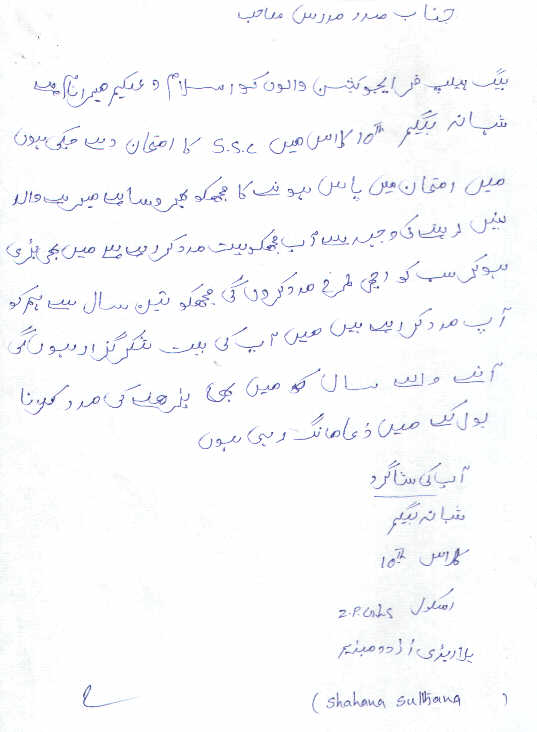 جناب صدر مدرس صاحب
بیگ ہیلپ فر ایجوکیشن والوں کو اسلام و علیکم میرا نام ہے
شہانہ بیگیم 10th کلاس میں S.S.C کا امتحان دے چکی ہوں
میں امتحان میں پاس ہونے کا مجھکو بھروسا ہے میرے والد
نہیں رہنے کی وجہ سے آپ مجھکو بہت مدد کر رہے ہے میں بھی بڑی
ہوکر سب کو اچھی طرح مدد کروں گی مجھکو تین سال سے ہم کو
آپ مدد کر رہے ہیں میں آپ کی بہت شکر گزار ہوں گی
آنے والے سال میں بھی پڑھنے کی مدد کرنا
بول کے میں دُعا مانگ رہی ہوں
آپ کی شاگرد
شبانہ بیگیم
کلاس 10th
اسکول Z.P.GHS
یلاریڈی اُردو میڈیم
( Shahana Sulthana )